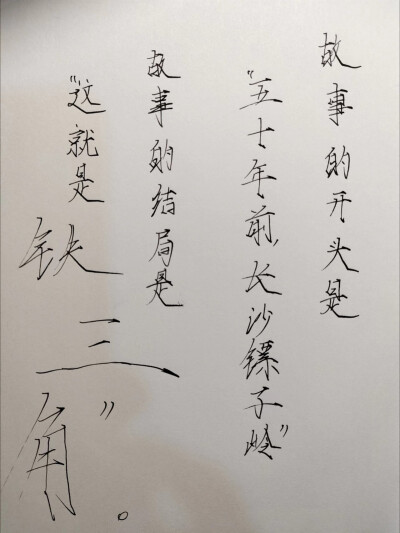 故事的开头是
“五十年前,长沙镖子岭”
故事的结局是
“这就是
铁
三
角”。